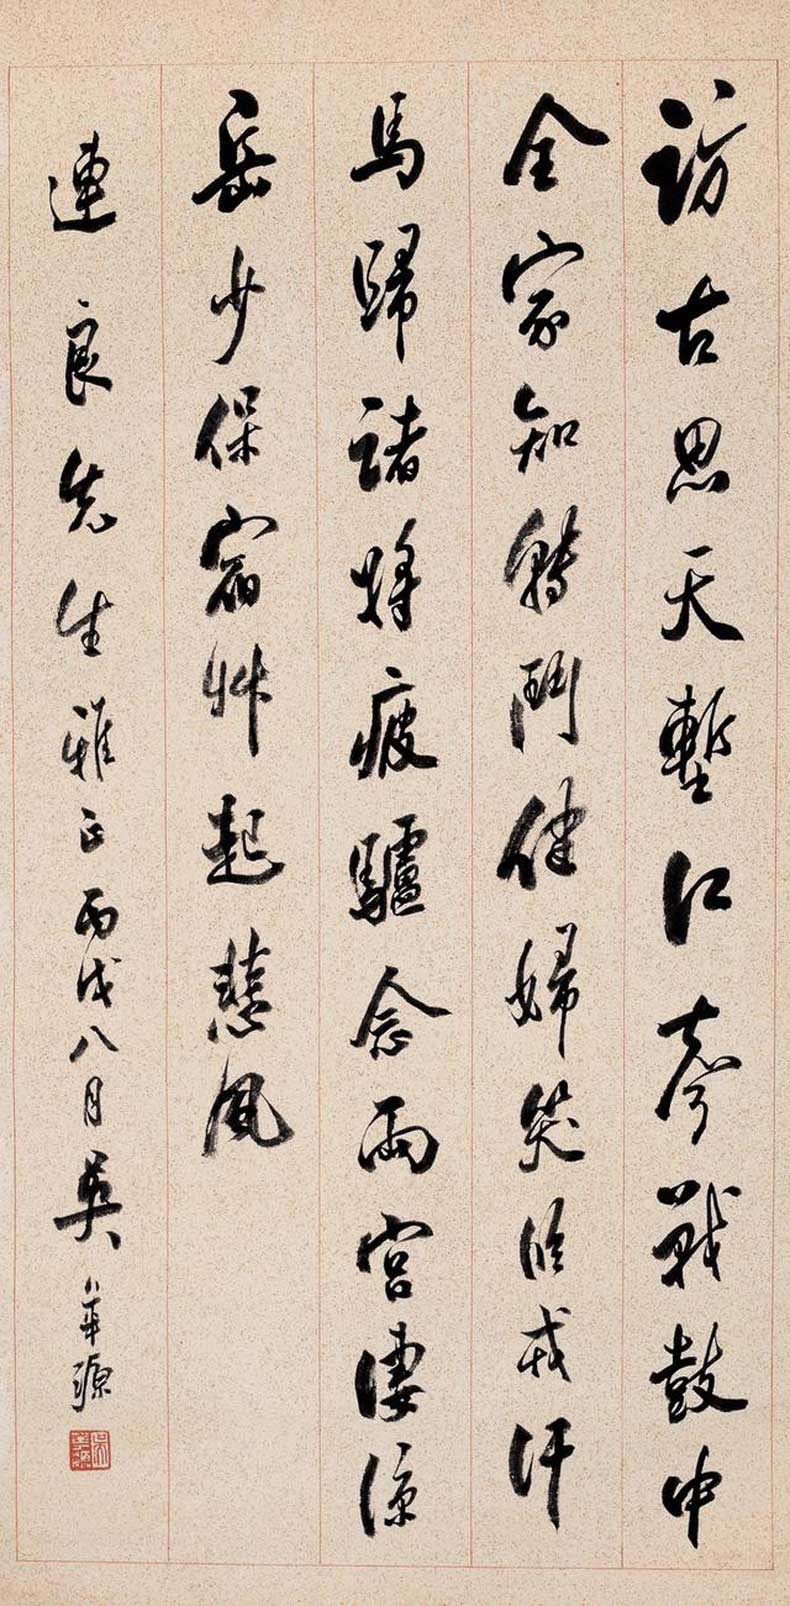 訪古思天塹江聲戰鼓中
全家知轉鬥健婦笑臨戎汗
馬歸諸將疲驢念兩宮淒涼
岳少保宿艸起悲風
連良先生雅正丙戌八月吳華源